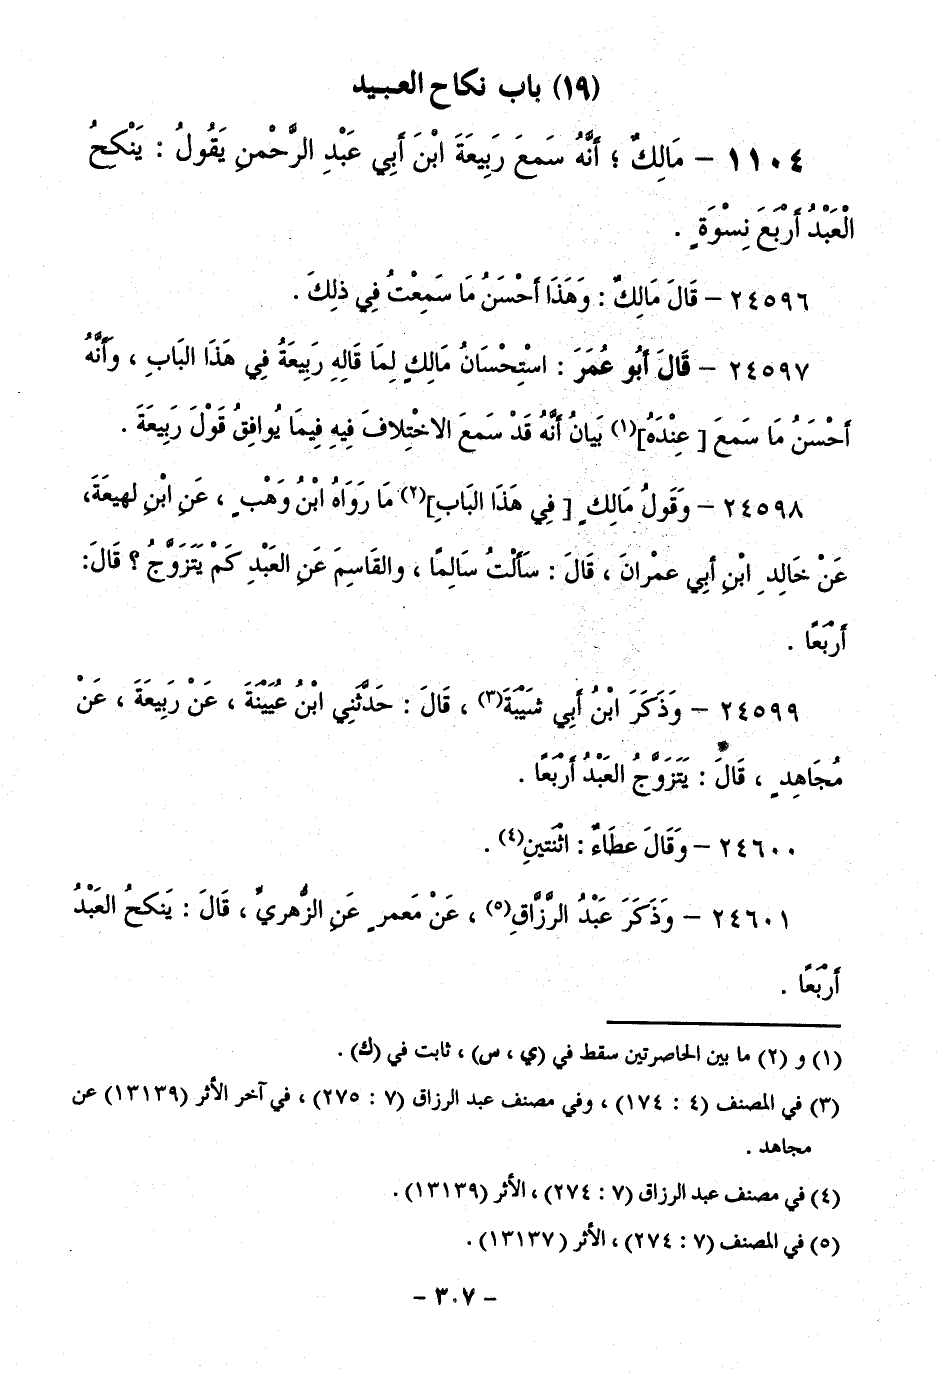 (١٩) باب نكاح العـبـيد
١١٠٤ – مَالِكٌ ؛ أَنَّهُ سَمعَ رَبِيعَةَ ابْنَ أَبِي عَبْدِ الرَّحْمنِ يَقُولُ : يَنْكِحُ
الْعَبْدُ أَرْبَعَ نِسْوَةٍ .
٢٤٥٩٦ – قَالَ مَالِكٌ : وَهَذَا أَحْسَنُ مَا سَمِعْتُ فِي ذلِكَ .
٢٤٥٩٧ – قَالَ أَبُو عُمَرَ : اسْتِحْسَانُ مَالِكٍ لِمَا قَالِهِ رَبِيعَةُ فِي هَذَا البَابِ ، وأَنَّهُ
أَحْسَنُ مَا سَمعَ [ عِنْدَهُ](١) بَيَانُ أَنَّهُ قَدْ سَمعَ الاخْتِلافَ فِيهِ فِيمَا يُوافِقُ قَوْلَ رَبِيعَةَ .
٢٤٥٩٨ – وَقَولُ مَالِكٍ [ فِي هَذَا البَابِ](٢) مَا رَوَاهُ ابْنُ وَهْبٍ ، عَنِ ابْنِ لهيعَةَ،
عَنْ خَالِدِ ابْنِ أَبِي عمْرانَ ، قَالَ : سَأَلْتُ سَالِمًا ، والقَاسِمَ عَنِ العَبْدِ كَمْ يَتَزَوَّجُ ؟ قَالَ:
أَرْبَعًا .
٢٤٥٩٩ – وَذَكَرَ ابْنُ أَبِي شَيْبَةَ(٣) ، قَالَ : حَدَّثَنِي ابْنُ عُيَيْنَةَ ، عَنْ رَبِيعَةَ ، عَنْ
مُجَاهِدٍ ، قَالَ : يَتَزَوَّجُ العَبْدُ أَرْبَعًا .
٢٤٦٠٠ – وَقَالَ عطَاءٌ : اثْنَتينِ(٤) .
٢٤٦٠١ – وَذَكَرَ عَبْدُ الرَّزَّاقِ(٥) ، عَنْ مَعمرٍ عَنِ الزُّهريِّ ، قَالَ : يَنكحُ العَبْدُ
أَرْبَعًا .
(١) و (٢) ما بين الحاصرتين سقط في (ي ، س) ، ثابت في (ك) .
(٣) في المصنف (٤ : ١٧٤) ، وفي مصنف عبد الرزاق (٧ : ٢٧٥) ، في آخر الأثر (١٣١٣٩) عن
مجاهد .
(٤) في مصنف عبد الرزاق (٧ : ٢٧٤) ، الأثر (١٣١٣٩) .
(٥) في المصنف (٧ : ٢٧٤) ، الأثر (١٣١٣٧) .
– ٣٠٧ –